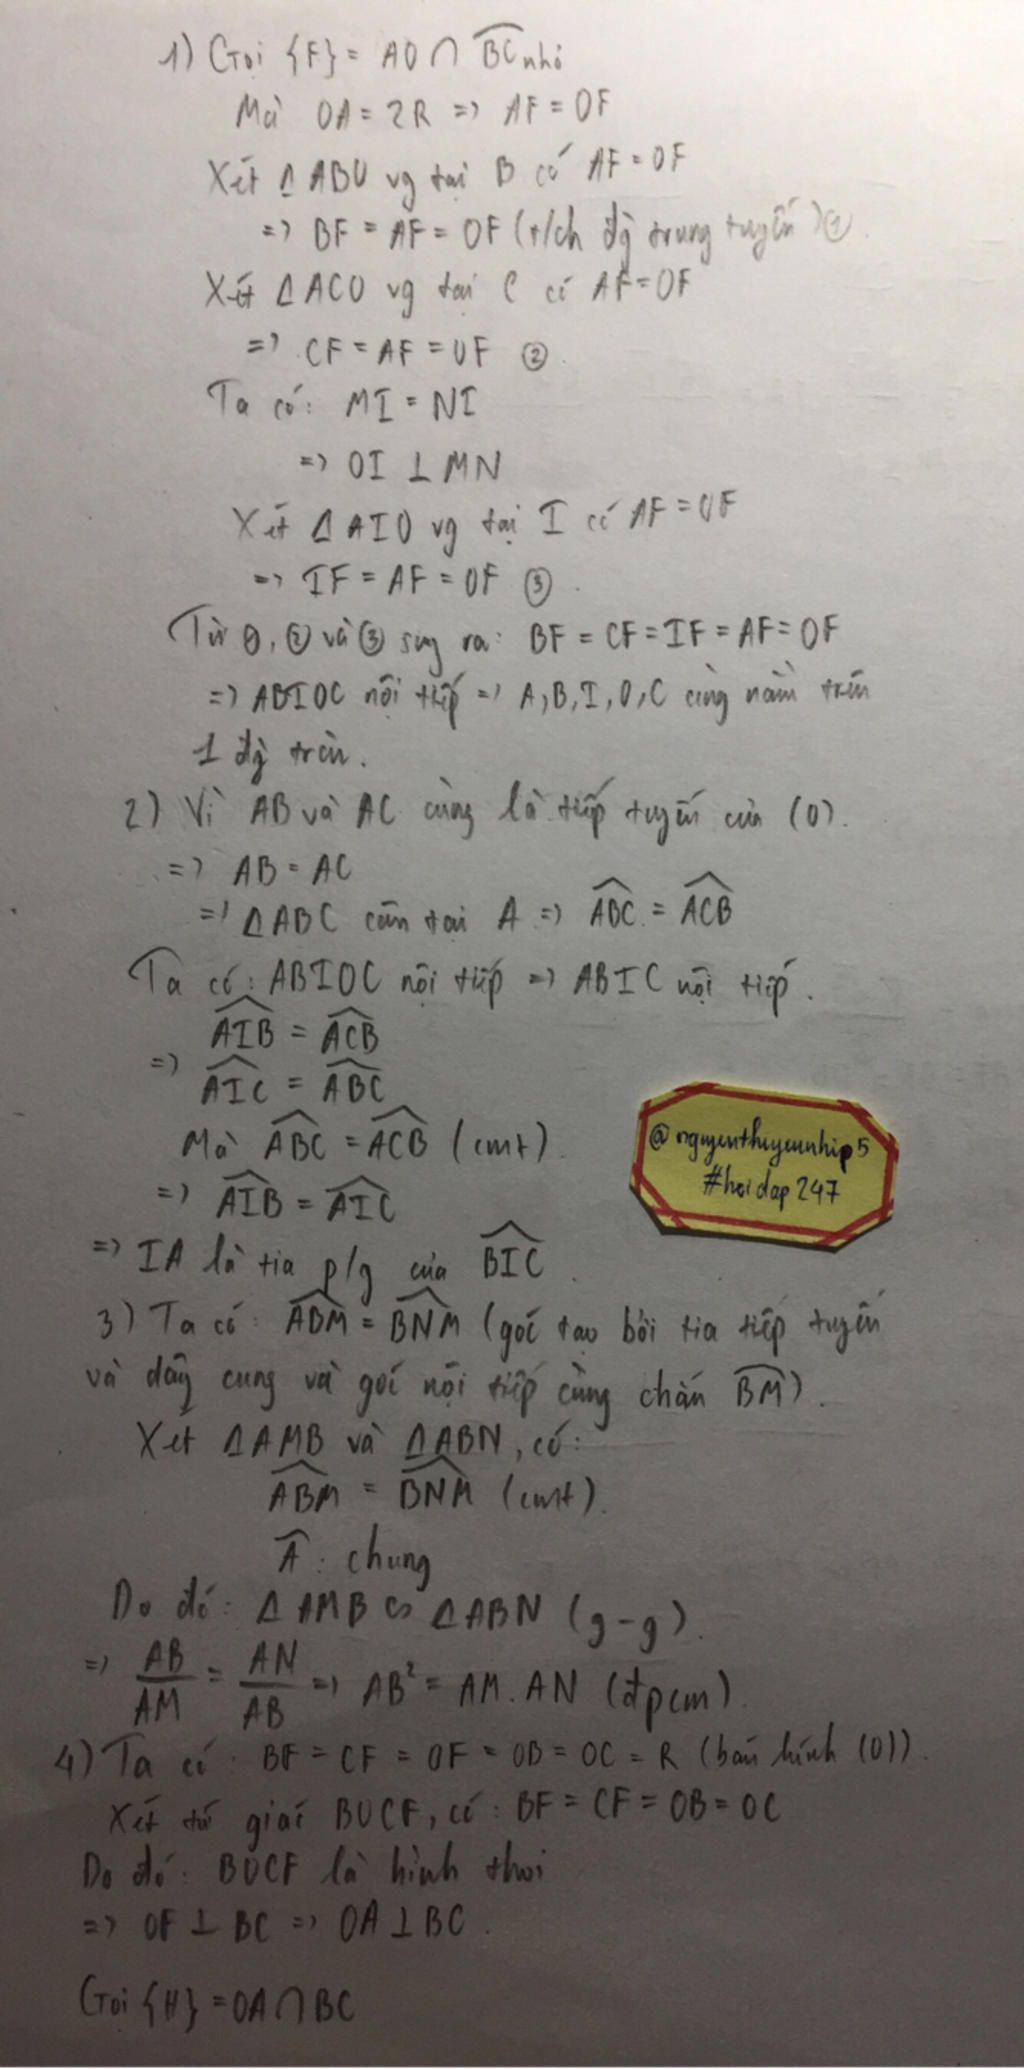 1) Gọi {F} = AO ∩ BC⌢ nhỏ
Mà OA = 2R => AF = OF
Xét Δ ABO vg tại B có AF = OF
=> BF = AF = OF (t/ch đg trung tuyến) ①
Xét Δ ACO vg tại C có AF = OF
=> CF = AF = OF ②.
Ta có: MI = NI
=> OI ⊥ MN
Xét Δ AIO vg tại I có AF = OF
=> IF = AF = OF ③.
Từ ①, ② và ③ suy ra: BF = CF = IF = AF = OF
=> ABIOC nội tiếp => A, B, I, O, C cùng nằm trên
1 đg tròn.
2) Vì AB và AC cùng là tiếp tuyến của (O).
=> AB = AC
=> Δ ABC cân tại A => ABC^ = ACB^
Ta có: ABIOC nội tiếp => ABIC nội tiếp.
AIB^ = ACB^
=>
AIC^ = ABC^
Mà ABC^ = ACB^ (cmt).
=> AIB^ = AIC^
=> IA là tia p/g của BIC^.
@nguyenthuyeunhip5
#hoidap247
3) Ta có: ABM^ = BNM^ (góc tạo bởi tia tiếp tuyến
và dây cung và góc nội tiếp cùng chắn BM⌢).
Xét Δ AMB và Δ ABN, có:
ABM^ = BNM^ (cmt).
A^: chung
Do đó: Δ AMB ∽ Δ ABN (g-g).
=> AB/AM = AN/AB => AB² = AM.AN (đpcm).
4) Ta có: BF = CF = OF = OB = OC = R (bán kính (O)).
Xét tứ giác BOCF, có: BF = CF = OB = OC
Do đó: BOCF là hình thoi
=> OF ⊥ BC => OA ⊥ BC.
Gọi {H} = OA ∩ BC